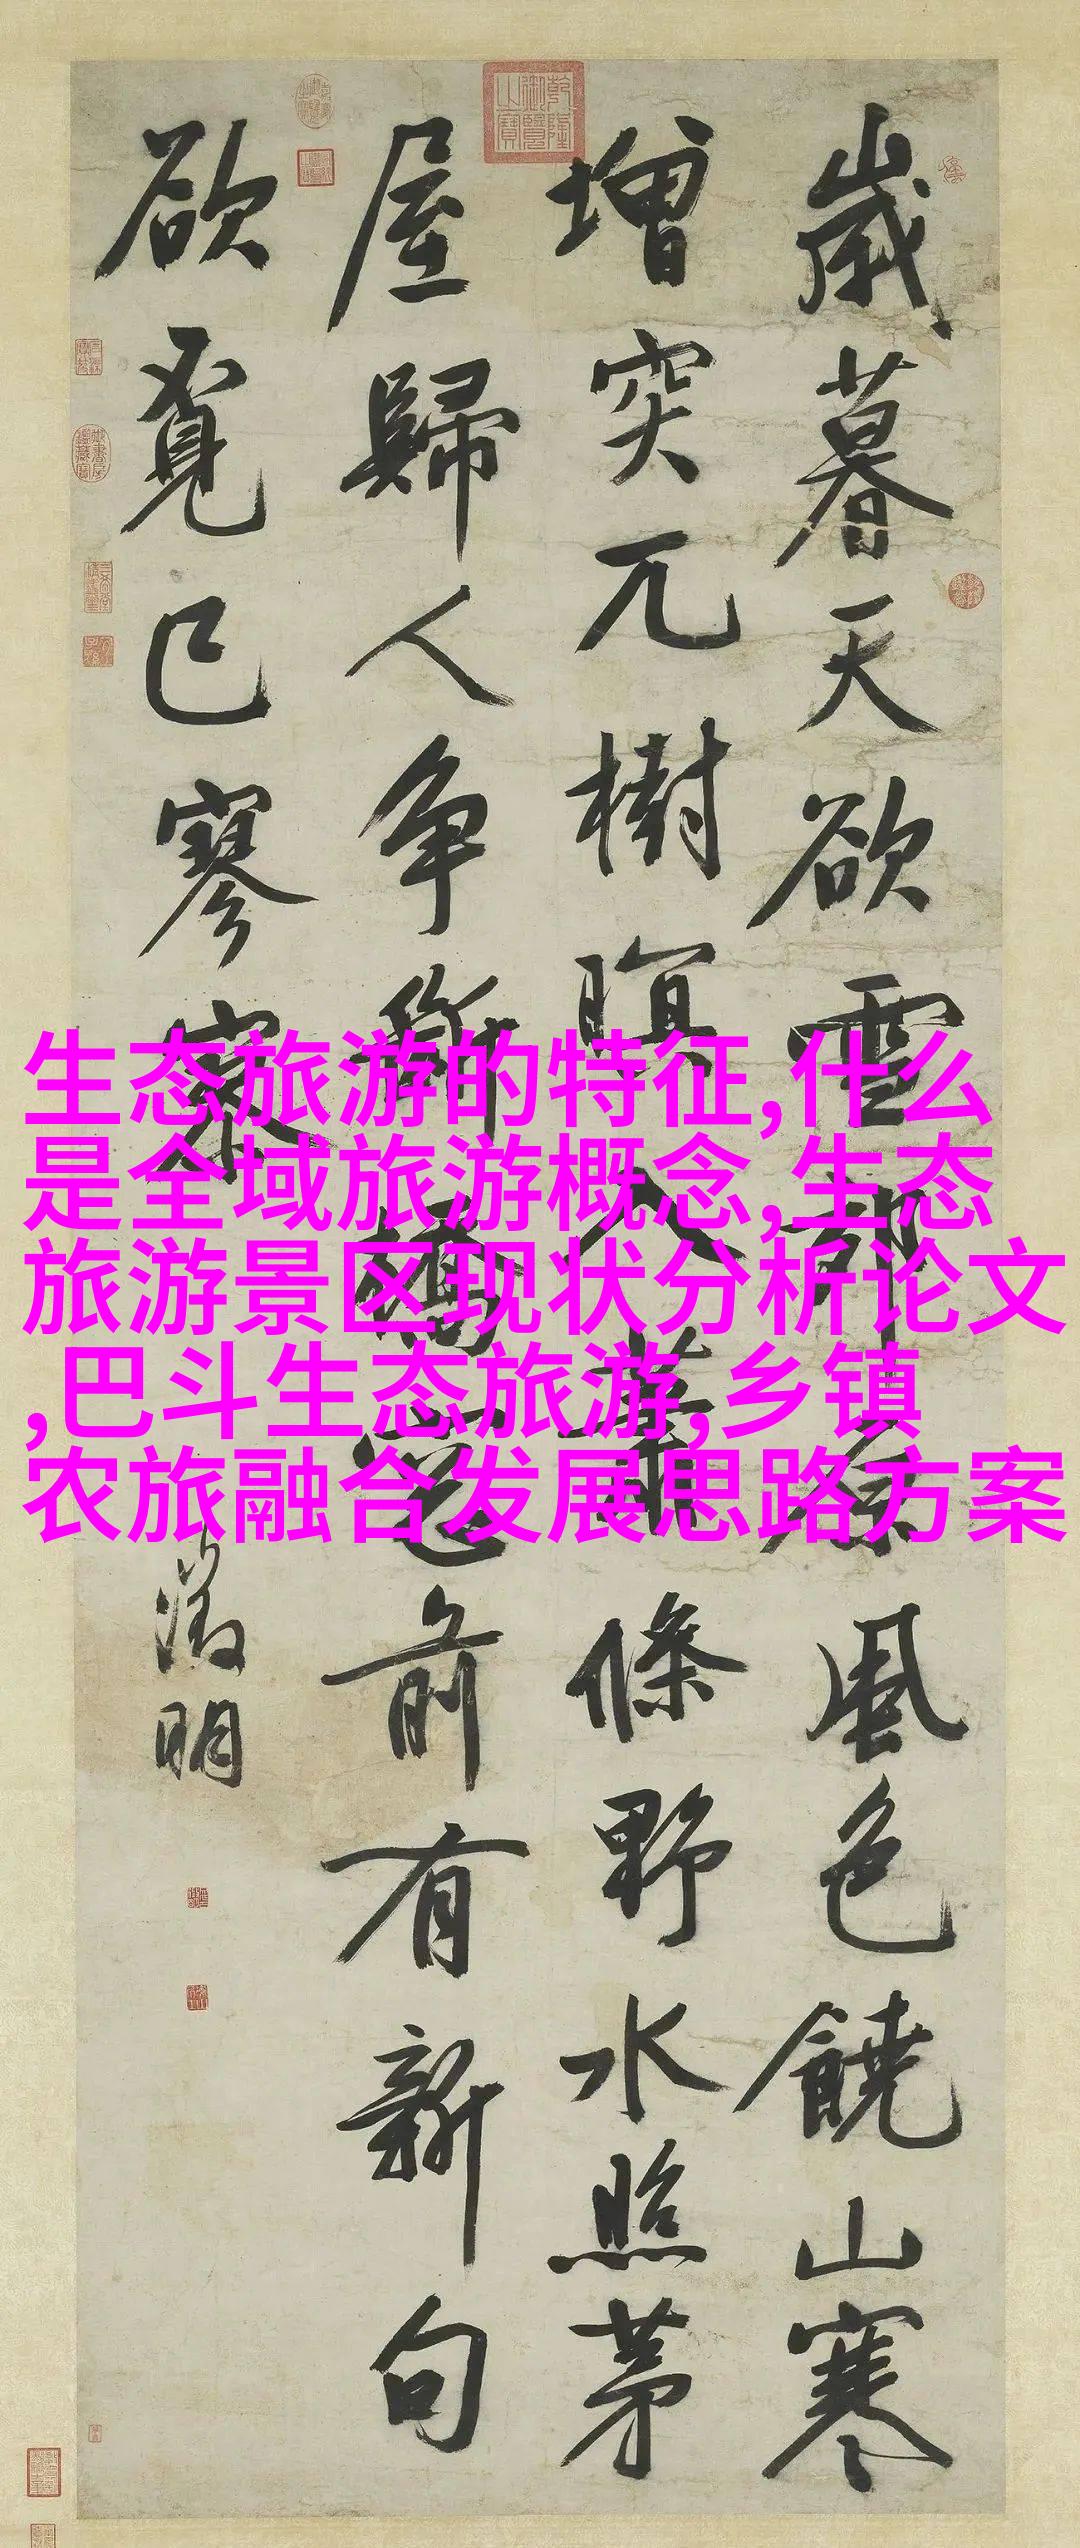 歲暮天欲雪郊風色饒山寒
增突兀樹暝入蕭條野水照茅
屋歸人爭斷橋窓前有新句
欲覓已寥寥
徵明
乾隆御覽之寶
生态旅游的特征,什么
是全域旅游概念,生态
旅游景区现状分析论文
,巴斗生态旅游,乡镇
农旅融合发展思路方案